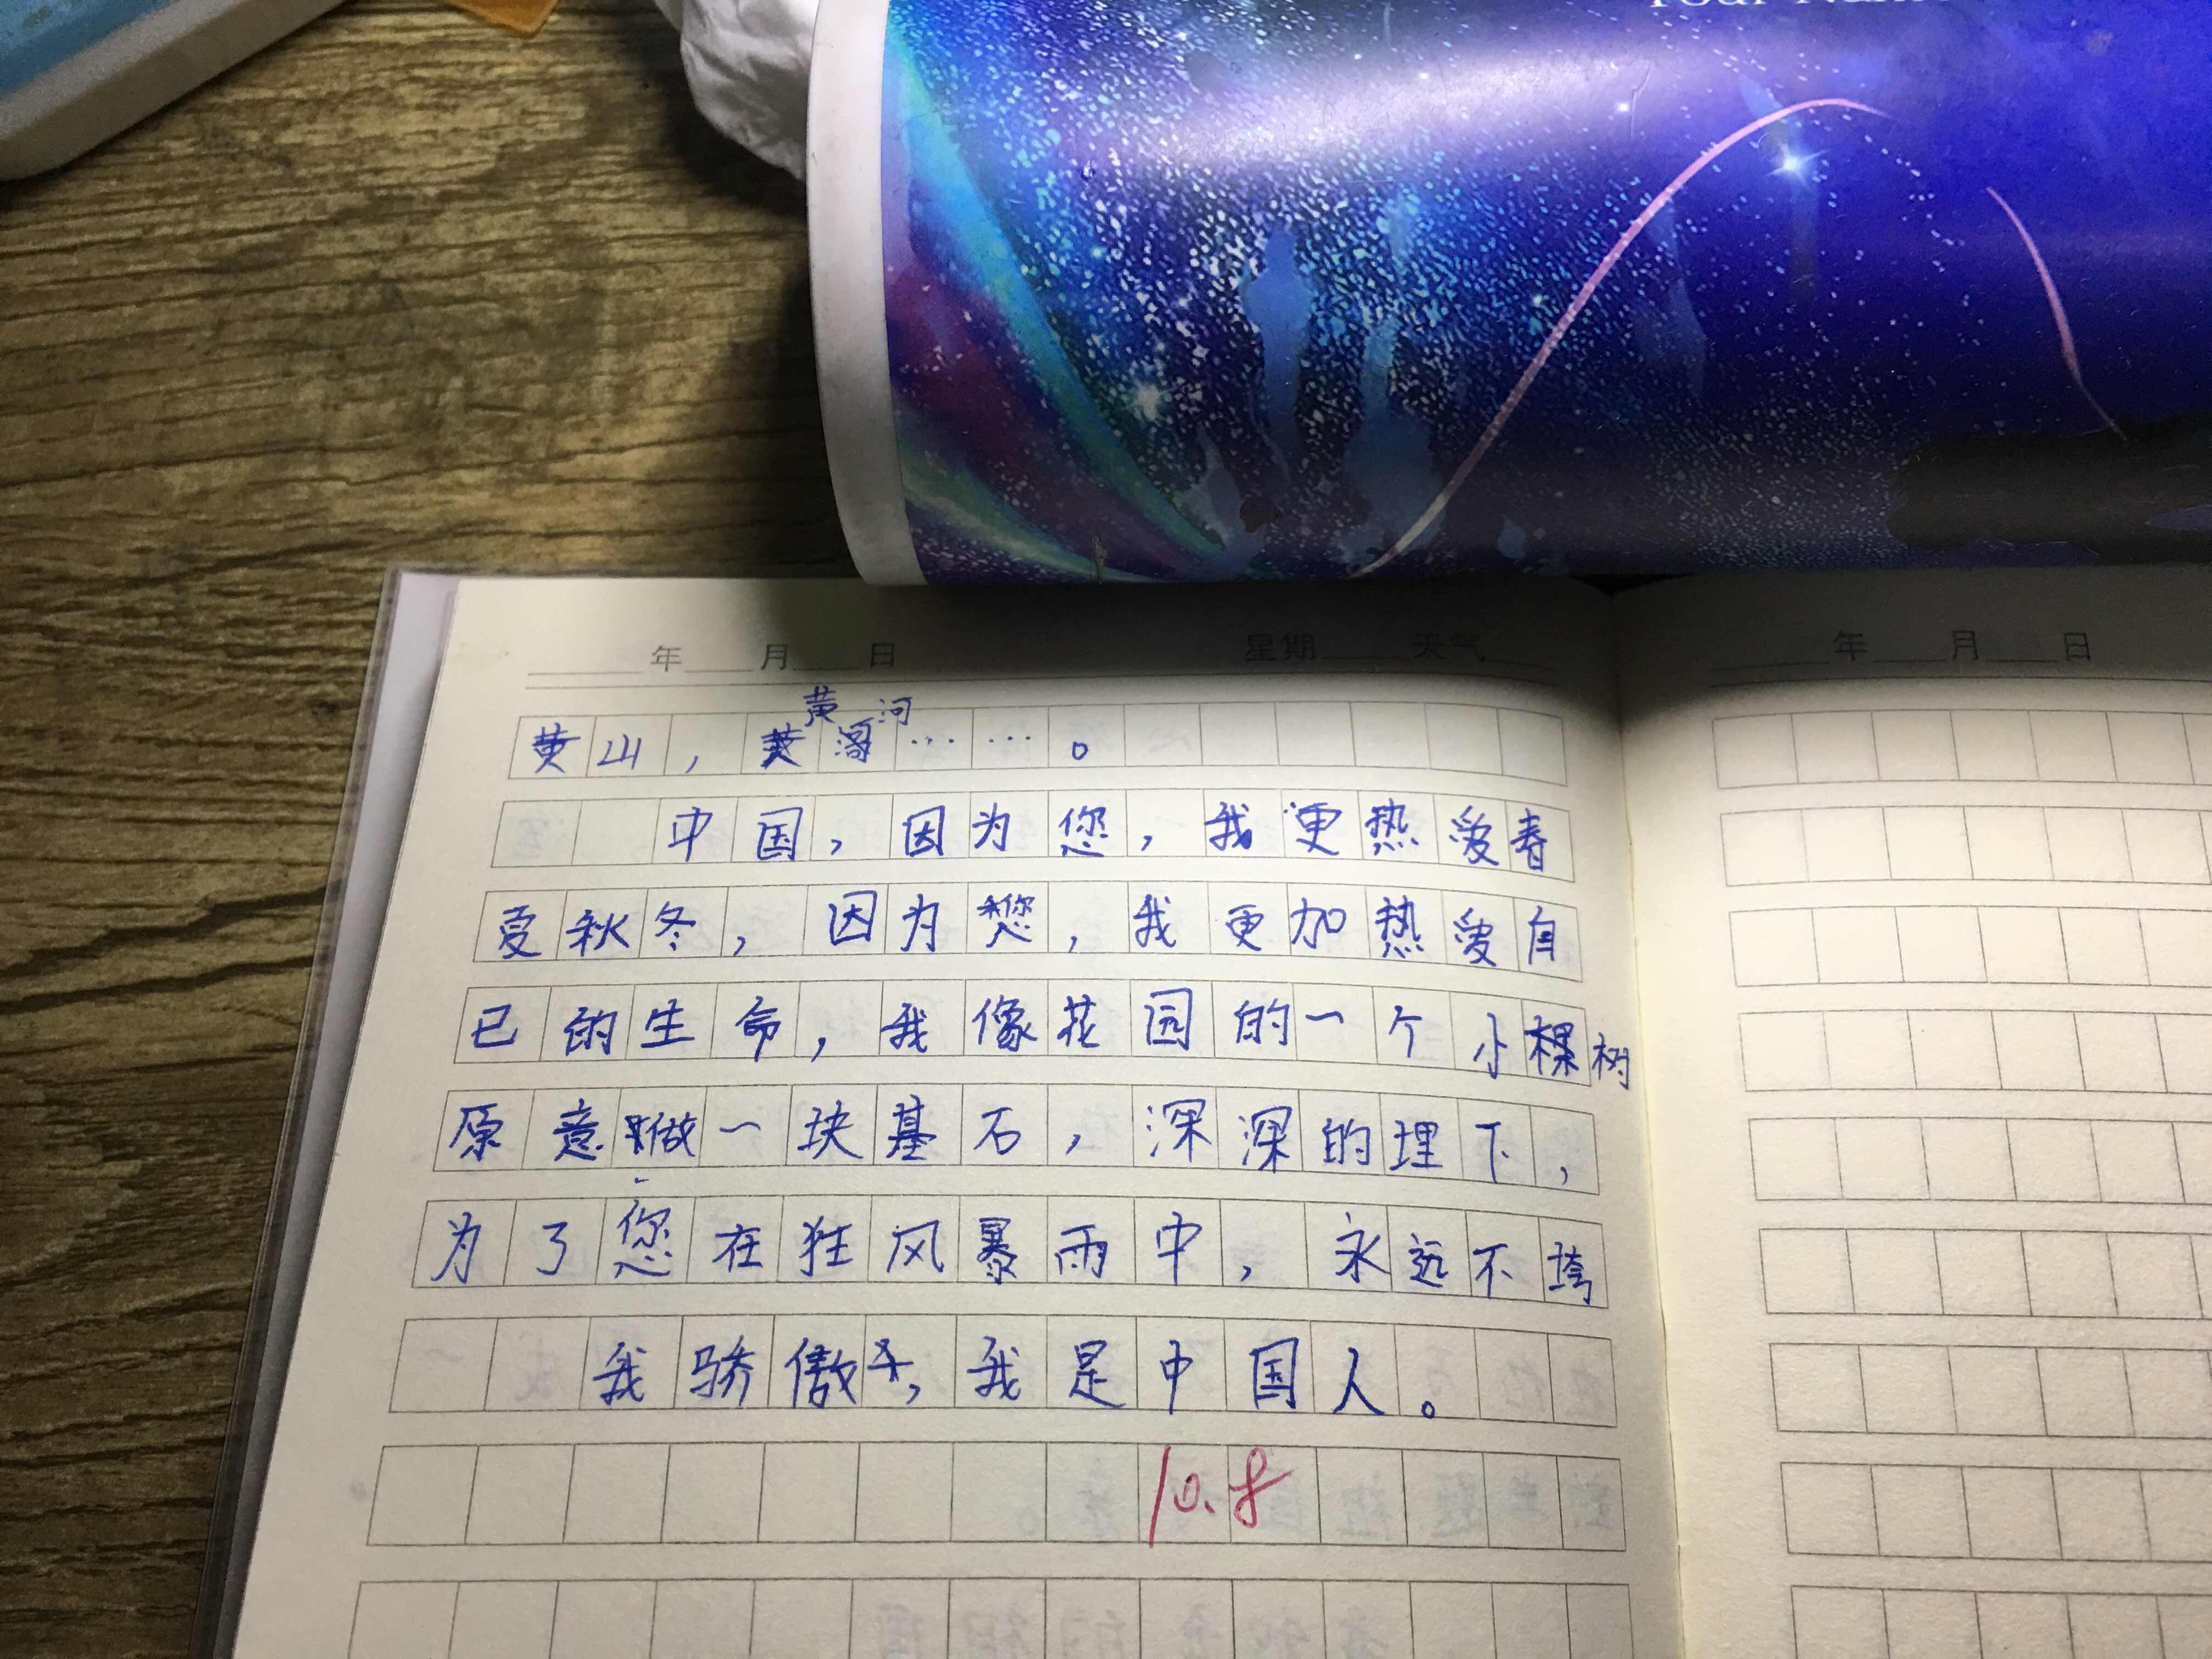 Your Name
年 月 日 星期 天气
年 月 日
黄河
黄山，……。
中国，因为您，我更热爱春
夏秋冬，因为您，我更加热爱自
己的生命，我像花园的一个小棵树
原意做一块基石，深深的埋下，
为了您在狂风暴雨中，永远不垮
我骄傲，我是中国人。
10.8